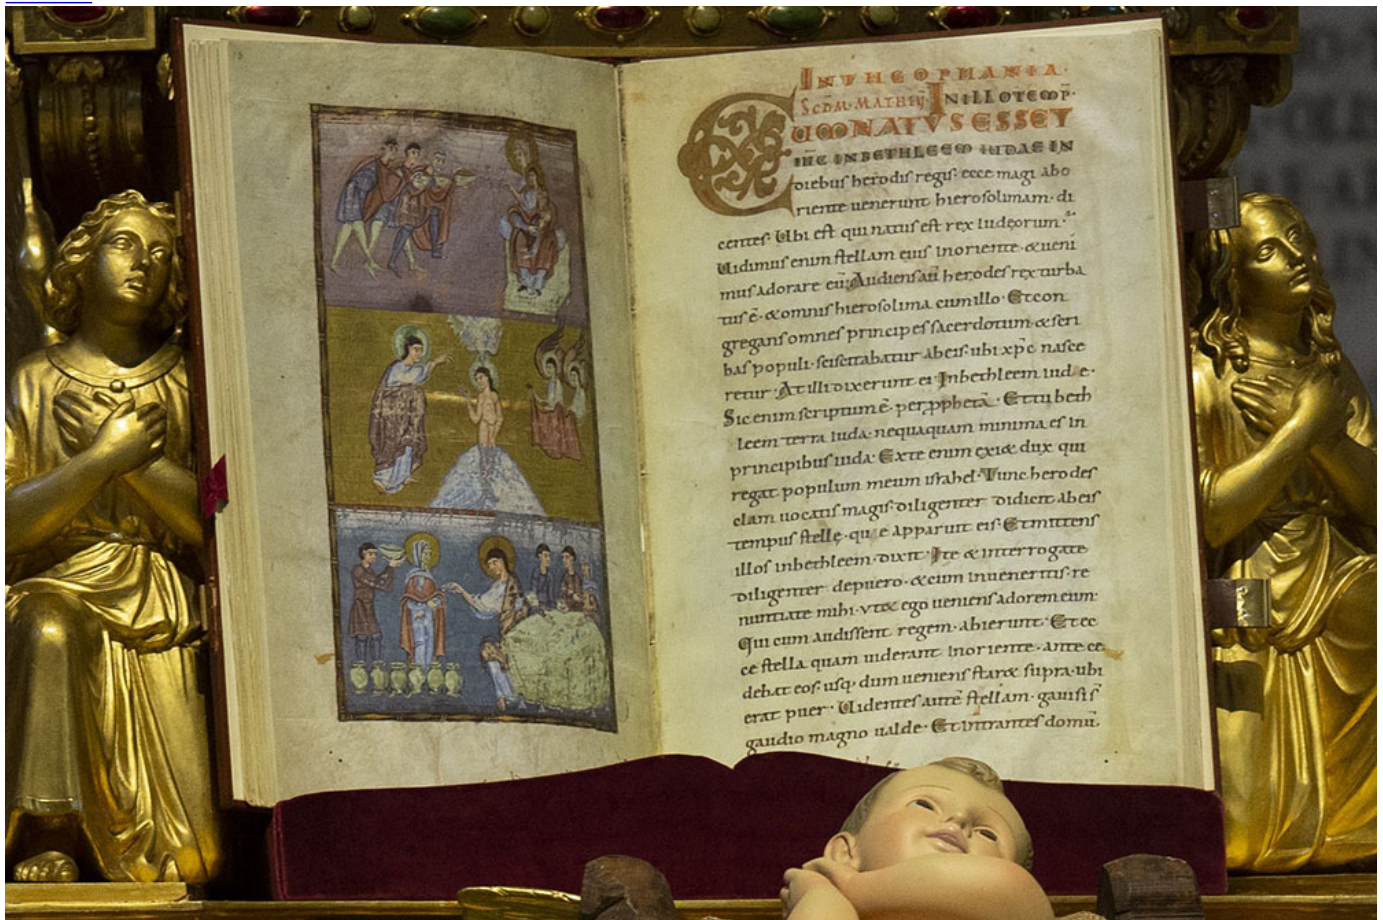 IN THEOPHANIA·
SCDM·MATHEŪ· IN ILLO TEMP·
CUM NATVS ESSET
IHC IN BETHLEEM IUDAE IN
diebus herodis regis· ecce magi abo
riente uenerunt hierosolimam· di
centes· Ubi est qui natus est rex Iudęorum·
Uidimus enim stellam eius in oriente· & ueni
mus adorare eū· Audiens aū herodes rex turba
tus ē· & omnis hierosolima cum illo· Et con
gregans omnes principes sacerdotum· & scri
bas populi· sciscitabatur ab eis· ubi xp̄c nasce
retur· At illi dixerunt ei· In bethleem iudę·
Sic enim scriptum ē· per pphetā· Et tu beth
leem terra iuda· nequaquam minima es in
principibus iuda· Ex te enim exi& dux qui
regat populum meum israhel· Tunc herodes
clam uocatis magis· diligenter didicit ab eis
tempus stellę· quę apparuit eis· Et mittens
illos in bethleem· dixit· Ite & interrogate
diligenter de puero· & cum inueneritis· re
nuntiate mihi· vt & ego ueniens adorem eum·
Qui cum audissent regem· abierunt· Et ec
ce stella quam uiderant in oriente· ante ce
debat eos· usq· dum ueniens star& supra· ubi
erat puer· Uidentes autē stellam· gauisi s̄
gaudio magno ualde· Et intrantes domū·